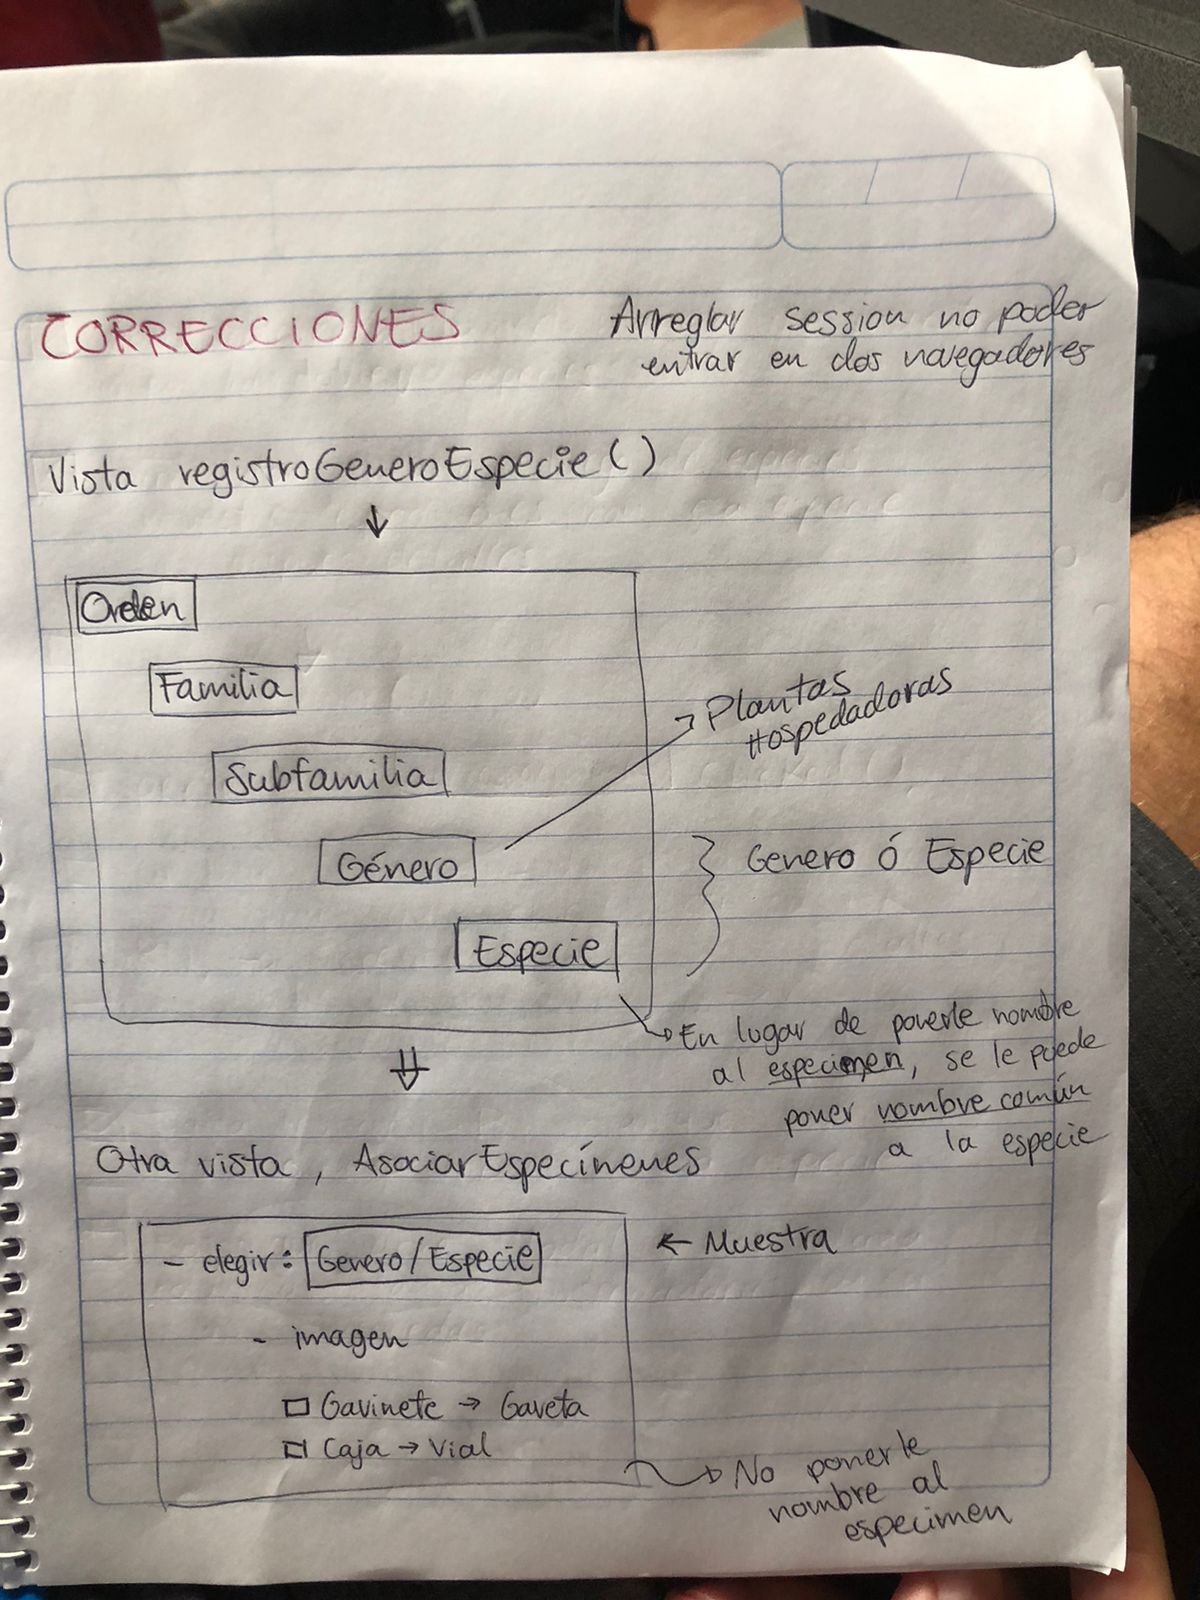 CORRECCIONES
Arreglar session no poder
entrar en dos navegadores
Vista registroGeneroEspecie()
↓
Orden
Familia
Subfamilia
Género
Especie
→ Plantas
Hospedadoras
} Genero ó Especie
→ En lugar de ponerle nombre
al especimen, se le puede
poner nombre común
a la especie
⇓
Otra vista, AsociarEspecínenes
- elegir: Genero/Especie
← Muestra
- imagen
□ Gavinete → Gaveta
□ Caja → Vial
→ No ponerle
nombre al
especimen